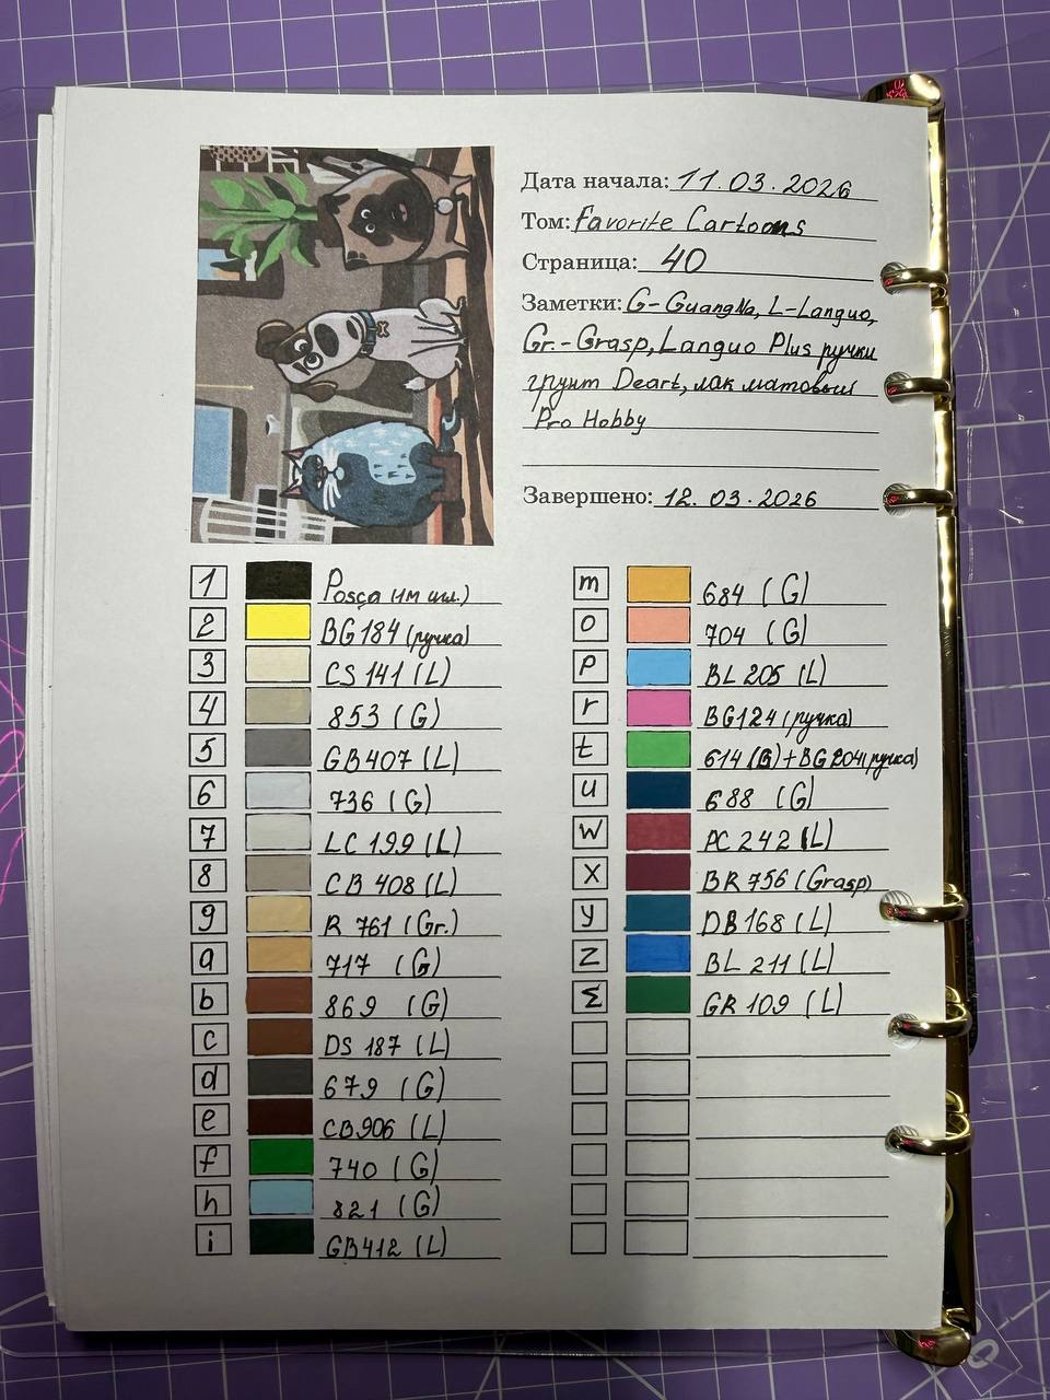 Дата начала: 11.03.2026
Том: Favorite Cartoons
Страница: 40
Заметки: G-GuangNa, L-Languo,
Gr.-Grasp, Languo Plus ручки
грунт Deart, лак матовый
Pro Hobby
Завершено: 12.03.2026
1 Posca (1м шл.)
2 BG184 (ручка)
3 CS 141 (L)
4 853 (G)
5 GB407 (L)
6 736 (G)
7 LC 199 (L)
8 CB 408 (L)
9 R 761 (Gr.)
a 717 (G)
b 869 (G)
c DS 187 (L)
d 679 (G)
e CB906 (L)
f 740 (G)
h 821 (G)
i GB412 (L)
m 684 (G)
o 704 (G)
p BL 205 (L)
r BG124 (ручка)
t 614 (G) + BG204 (ручка)
u 688 (G)
w PC 242 (L)
x BR 756 (Grasp)
y DB 168 (L)
z BL 211 (L)
Σ GR 109 (L)